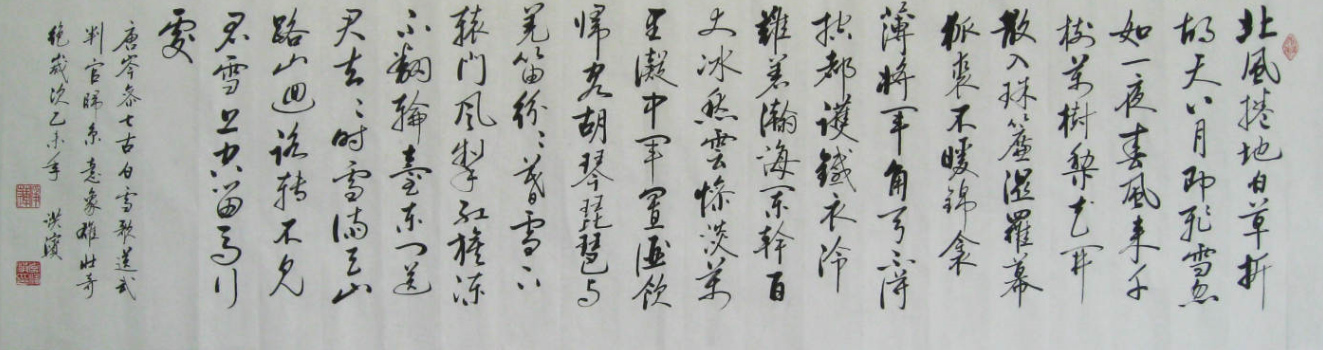 北風捲地白草折
胡天八月即飛雪忽
如一夜春風來千
樹萬樹梨花開
散入珠簾濕羅幕
狐裘不暖錦衾
薄將軍角弓不得
控都護鐵衣冷
難着瀚海闌幹百
丈冰愁雲慘淡萬
里凝中軍置酒飲
歸客胡琴琵琶與
羌笛紛〻暮雪下
轅門風掣紅旗凍
不翻輪臺東門送
君去〻時雪滿天山
路山迴路轉不見
君雪上空留馬行
處
唐岑參七古白雪歌送武
判官歸京意象雄壯奇
絕歲次乙未年